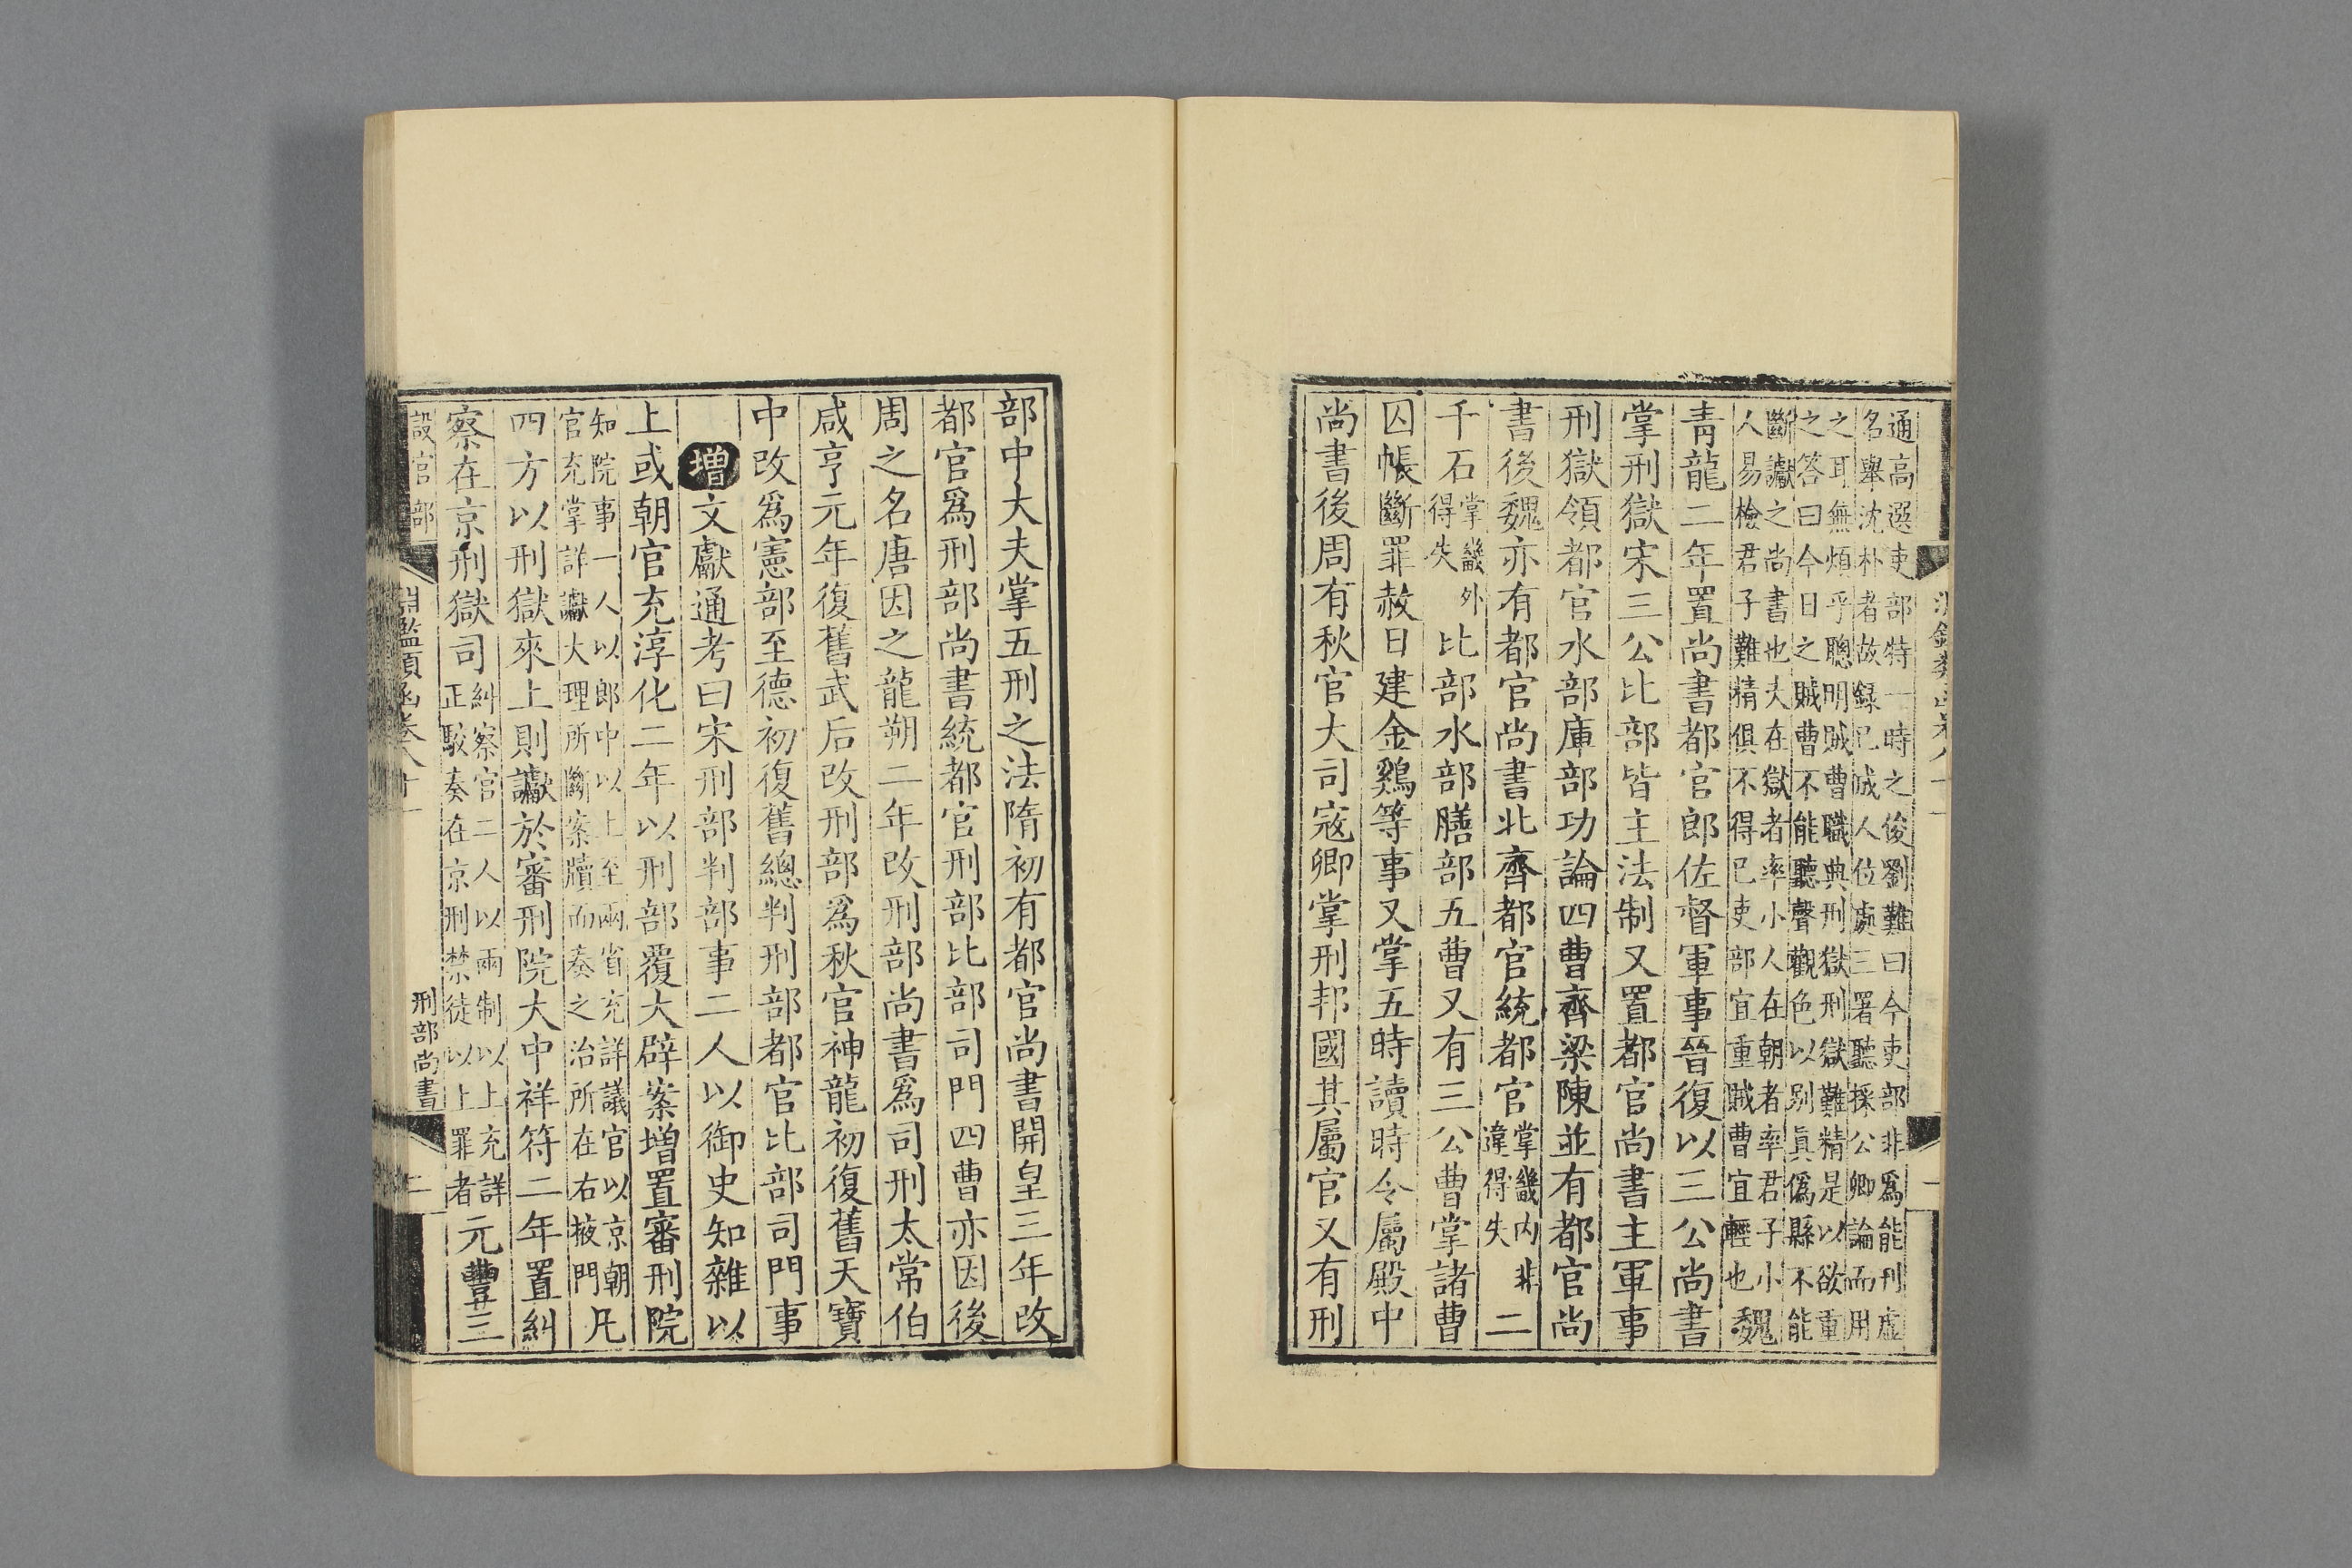 通高選吏部特一時之俊劉難曰今吏部非爲能刋虛
名舉沈朴者故錄已成人位處三署聽採公卿論而用
之耳無煩乎聰明賊曹職典刑獄刑獄難精是以欲重
之答曰今日之賊曹不能聽聲觀色以别眞僞縣不能
斷讞之尚書也夫在獄者率小人在朝者率君子小
人易檢君子難精俱不得已吏部宜重賊曹宜輕也魏
青龍二年置尚書都官郎佐督軍事晉復以三公尚書
掌刑獄宋三公比部皆主法制又置都官尚書主軍事
刑獄領都官水部庫部功論四曹齊梁陳並有都官尚
書後魏亦有都官尚書北齊都官統都官掌畿内非違得失二
千石掌畿外得失比部水部膳部五曹又有三公曹掌諸曹
囚帳斷罪赦日建金鷄等事又掌五時讀時令屬殿中
尚書後周有秋官大司寇卿掌刑邦國其屬官又有刑
部中大夫掌五刑之法隋初有都官尚書開皇三年改
都官爲刑部尚書統都官刑部比部司門四曹亦因後
周之名唐因之龍朔二年改刑部尚書爲司刑太常伯
咸亨元年復舊武后改刑部爲秋官神龍初復舊天寶
中改爲憲部至德初復舊總判刑部都官比部司門事
增文獻通考曰宋刑部判部事二人以御史知雜以
上或朝官充淳化二年以刑部覆大辟案增置審刑院
知院事一人以郎中以上至兩省充詳議官以京朝
官充掌詳讞大理所斷案牘而奏之治所在右掖門凡
四方以刑獄來上則讞於審刑院大中祥符二年置糾
察在京刑獄司糾察官二人以兩制以上充詳正駁奏在京刑禁徒以上罪者元豐三
設官部
淵鑑類函卷八十一
刑部尚書
二